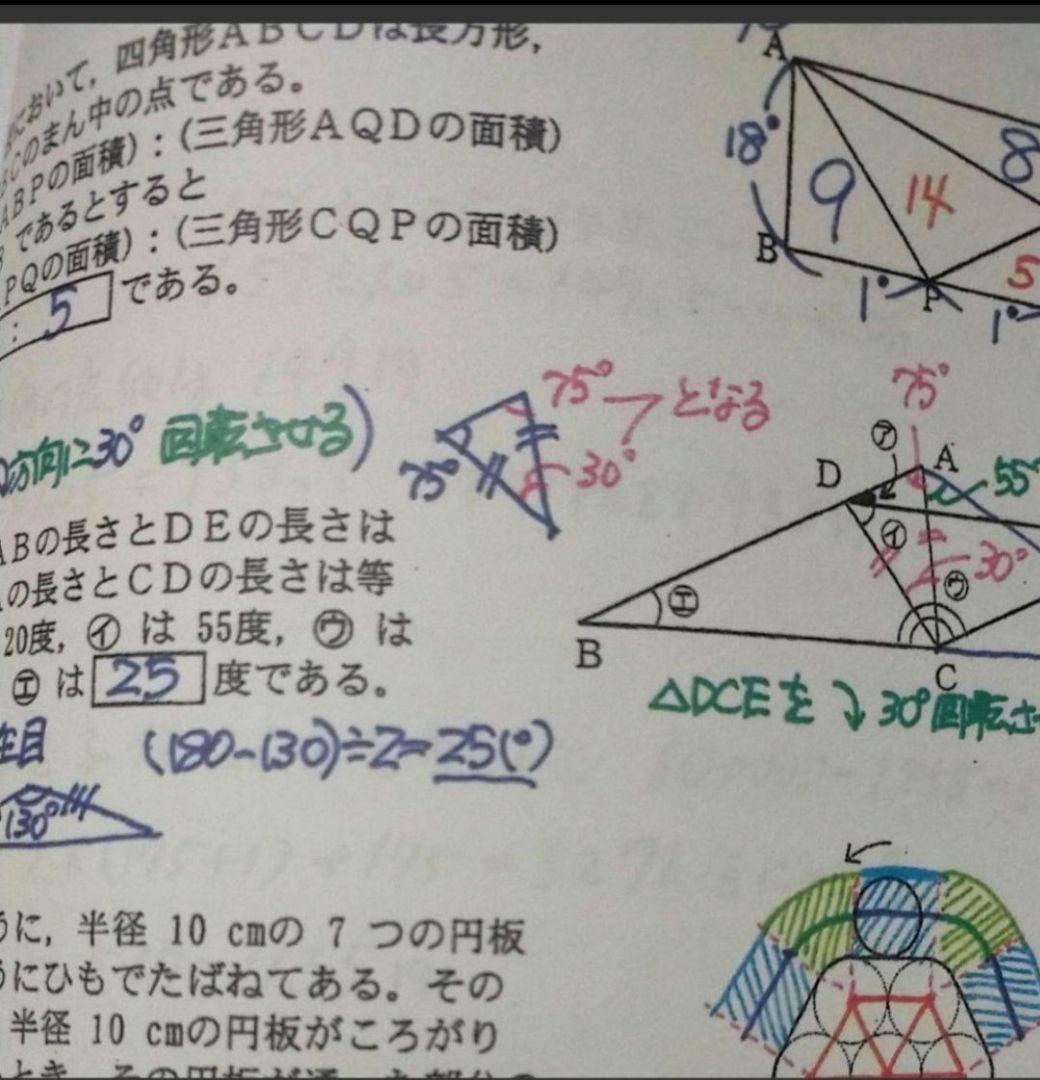 において, 四角形ABCDは長方形,
BCのまん中の点である。
ABPの面積):(三角形AQDの面積)
であるとすると
PQの面積):(三角形CQPの面積)
: 5 である。
A
18°
9
14
8
B
1°
P
5
1°
方向に30° 回転させる)
75°
となる
75°
30°
ABの長さとDEの長さは
の長さとCDの長さは等
20度, ㋑ は 55度, ㋒ は
㋓ は 25 度である。
75°
㋐
D
A
55°
㋑
30°
㋒
㋓
B
C
△DCEを 30°回転さ
(180-130)÷2=25(°)
130°
うに, 半径 10 cmの 7 つの円板
うにひもでたばねてある。その
半径 10 cmの円板がころがり
とき, その円板が通った部分の